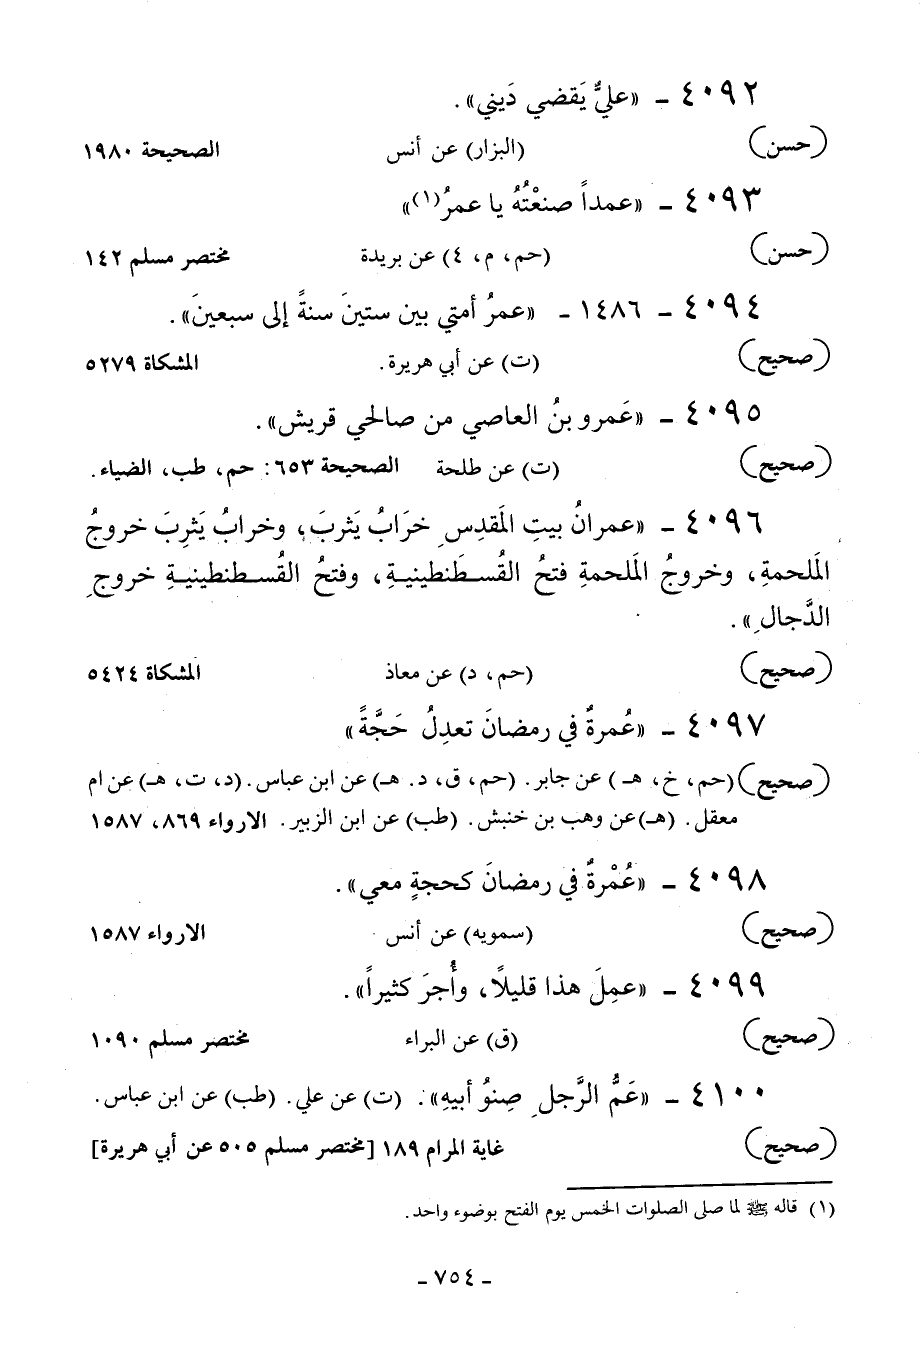 ٤٠٩٢ - «عليٌّ يَقضي دَيني».
(حسن) (البزار) عن أنس الصحيحة ١٩٨٠
٤٠٩٣ - «عمداً صنعْتُهُ يا عمرُ(١)»
(حسن) (حم، م، ٤) عن بريدة مختصر مسلم ١٤٢
٤٠٩٤ - ١٤٨٦ - «عمرُ أمتي بين ستينَ سنةً إلى سبعينَ».
(صحيح) (ت) عن أبي هريرة. المشكاة ٥٢٧٩
٤٠٩٥ - «عَمرو بنُ العاصي من صالحي قريش».
(صحيح) (ت) عن طلحة الصحيحة ٦٥٣: حم، طب، الضياء.
٤٠٩٦ - «عمرانُ بيتِ المَقدِسِ خرَابُ يَثربَ، وخرابُ يَثرِبَ خروجُ
المَلحمةِ، وخروجُ المَلحمةِ فتحُ القُسطَنطينيةِ، وفتحُ القُسطنطينيةِ خروجِ
الدَّجالِ».
(صحيح) (حم، د) عن معاذ المشكاة ٥٤٢٤
٤٠٩٧ - «عُمرةٌ في رمضانَ تعدِلُ حَجَّةً»
(صحيح) (حم، خ، هـ) عن جابر. (حم، ق، د. هـ) عن ابن عباس. (د، ت، هـ) عن ام
معقل. (هـ) عن وهب بن خنبش. (طب) عن ابن الزبير. الارواء ٨٦٩، ١٥٨٧
٤٠٩٨ - «عُمْرةٌ في رمضانَ كحجةٍ معي».
(صحيح) (سمويه) عن أنس الارواء ١٥٨٧
٤٠٩٩ - «عمِلَ هذا قليلًا، وأُجرَ كثيراً».
(صحيح) (ق) عن البراء مختصر مسلم ١٠٩٠
٤١٠٠ - «عَمُّ الرَّجلِ صِنوُ أبيهِ». (ت) عن علي. (طب) عن ابن عباس.
(صحيح) غاية المرام ١٨٩ [مختصر مسلم ٥٠٥ عن أبي هريرة]
(١) قاله ﷺ لما صلى الصلوات الخمس يوم الفتح بوضوء واحد.
- ٧٥٤ -